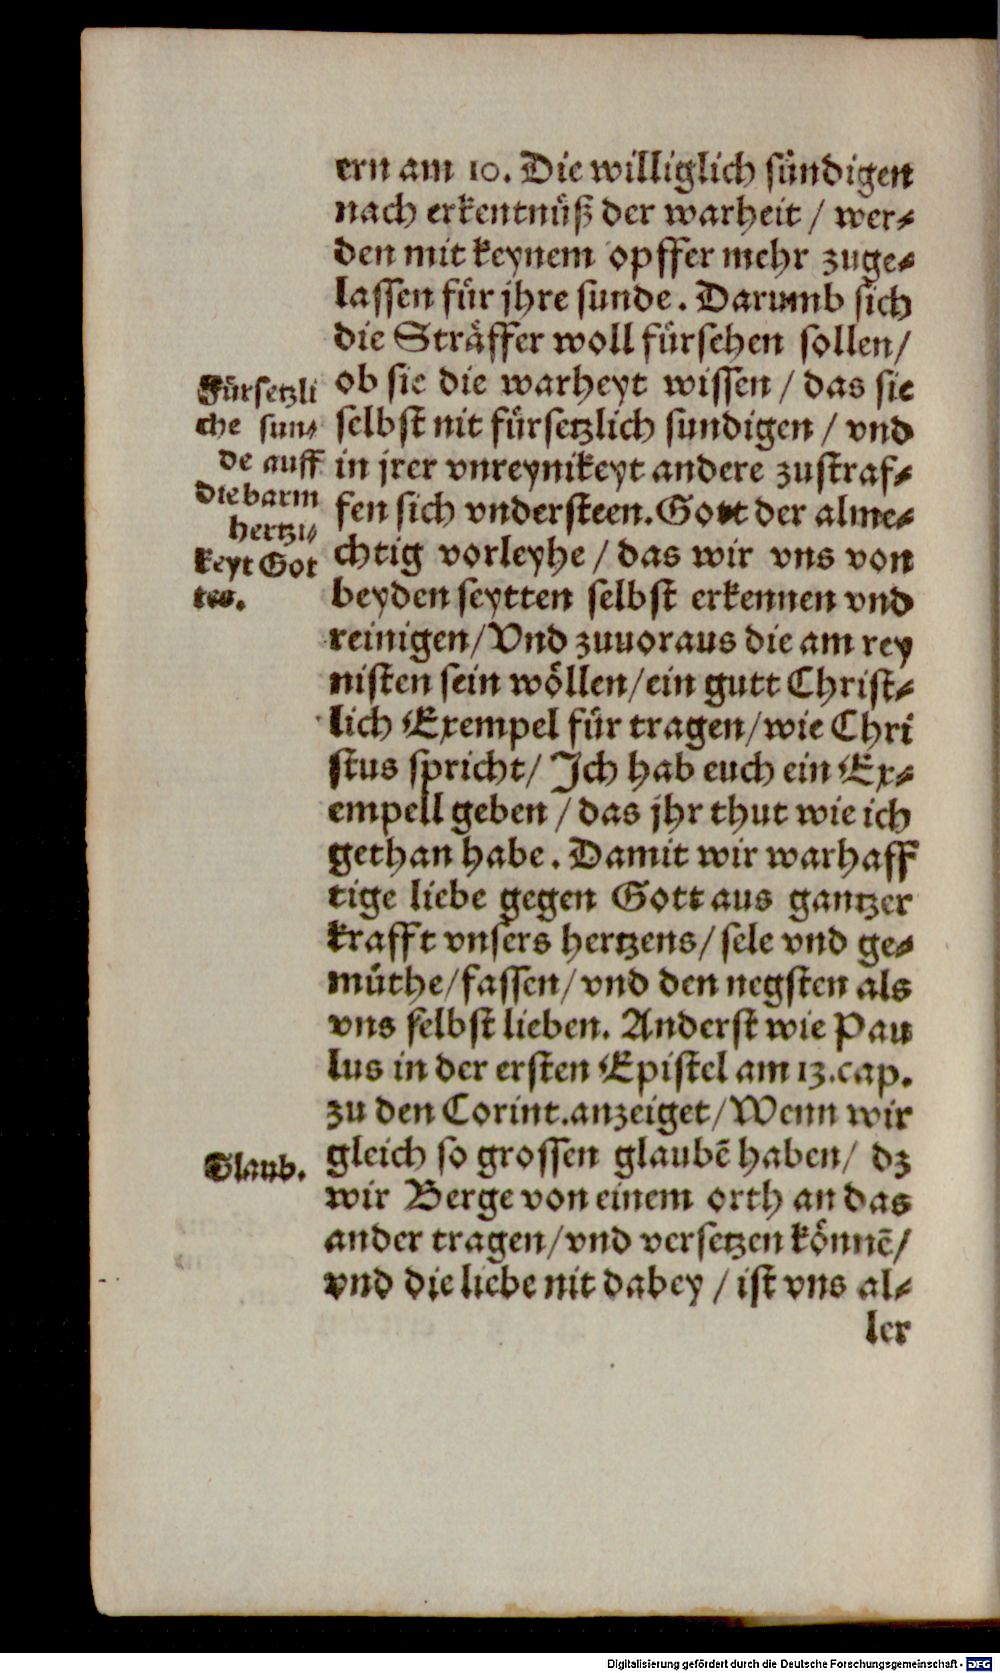 ern am 10. Die williglich sündigen
nach erkentnüß der warheit / wer⸗
den mit keynem opffer mehr zuge⸗
lassen für jhre sunde. Darumb sich
die Sträffer woll fürsehen sollen/
ob sie die warheyt wissen / das sie
selbst nit fürsetzlich sundigen / vnd
in jrer vnreynikeyt andere zustraf⸗
fen sich vndersteen. Gott der alme⸗
chtig vorleyhe / das wir vns von
beyden seytten selbst erkennen vnd
reinigen/ Vnd zuuoraus die am rey
nisten sein wöllen/ ein gutt Christ⸗
lich Exempel für tragen/ wie Chri
stus spricht/ Ich hab euch ein Ex⸗
empell geben / das jhr thut wie ich
gethan habe. Damit wir warhaff
tige liebe gegen Gott aus gantzer
krafft vnsers hertzens/ sele vnd ge⸗
müthe/ fassen/ vnd den negsten als
vns selbst lieben. Anderst wie Pau
lus in der ersten Epistel am 13. cap.
zu den Corint. anzeiget/ Wenn wir
gleich so grossen glaubē haben/ dz
wir Berge von einem orth an das
ander tragen/ vnd versetzen könnē/
vnd die liebe nit dabey / ist vns al⸗
ler
Fürsetzli
che sun⸗
de auff
die barm
hertzi⸗
keyt Got
tes.
Glaub.
Digitalisierung gefördert durch die Deutsche Forschungsgemeinschaft - DFG